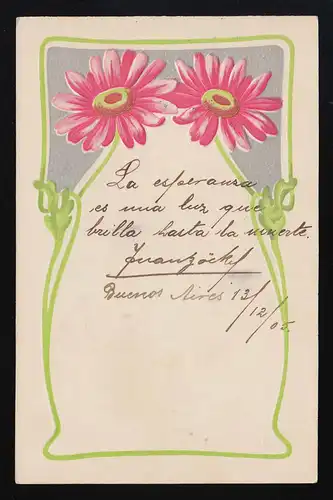 La esperanza
es una luz que
brilla hasta la muerte.
Buenos Aires 13/
12/
05.